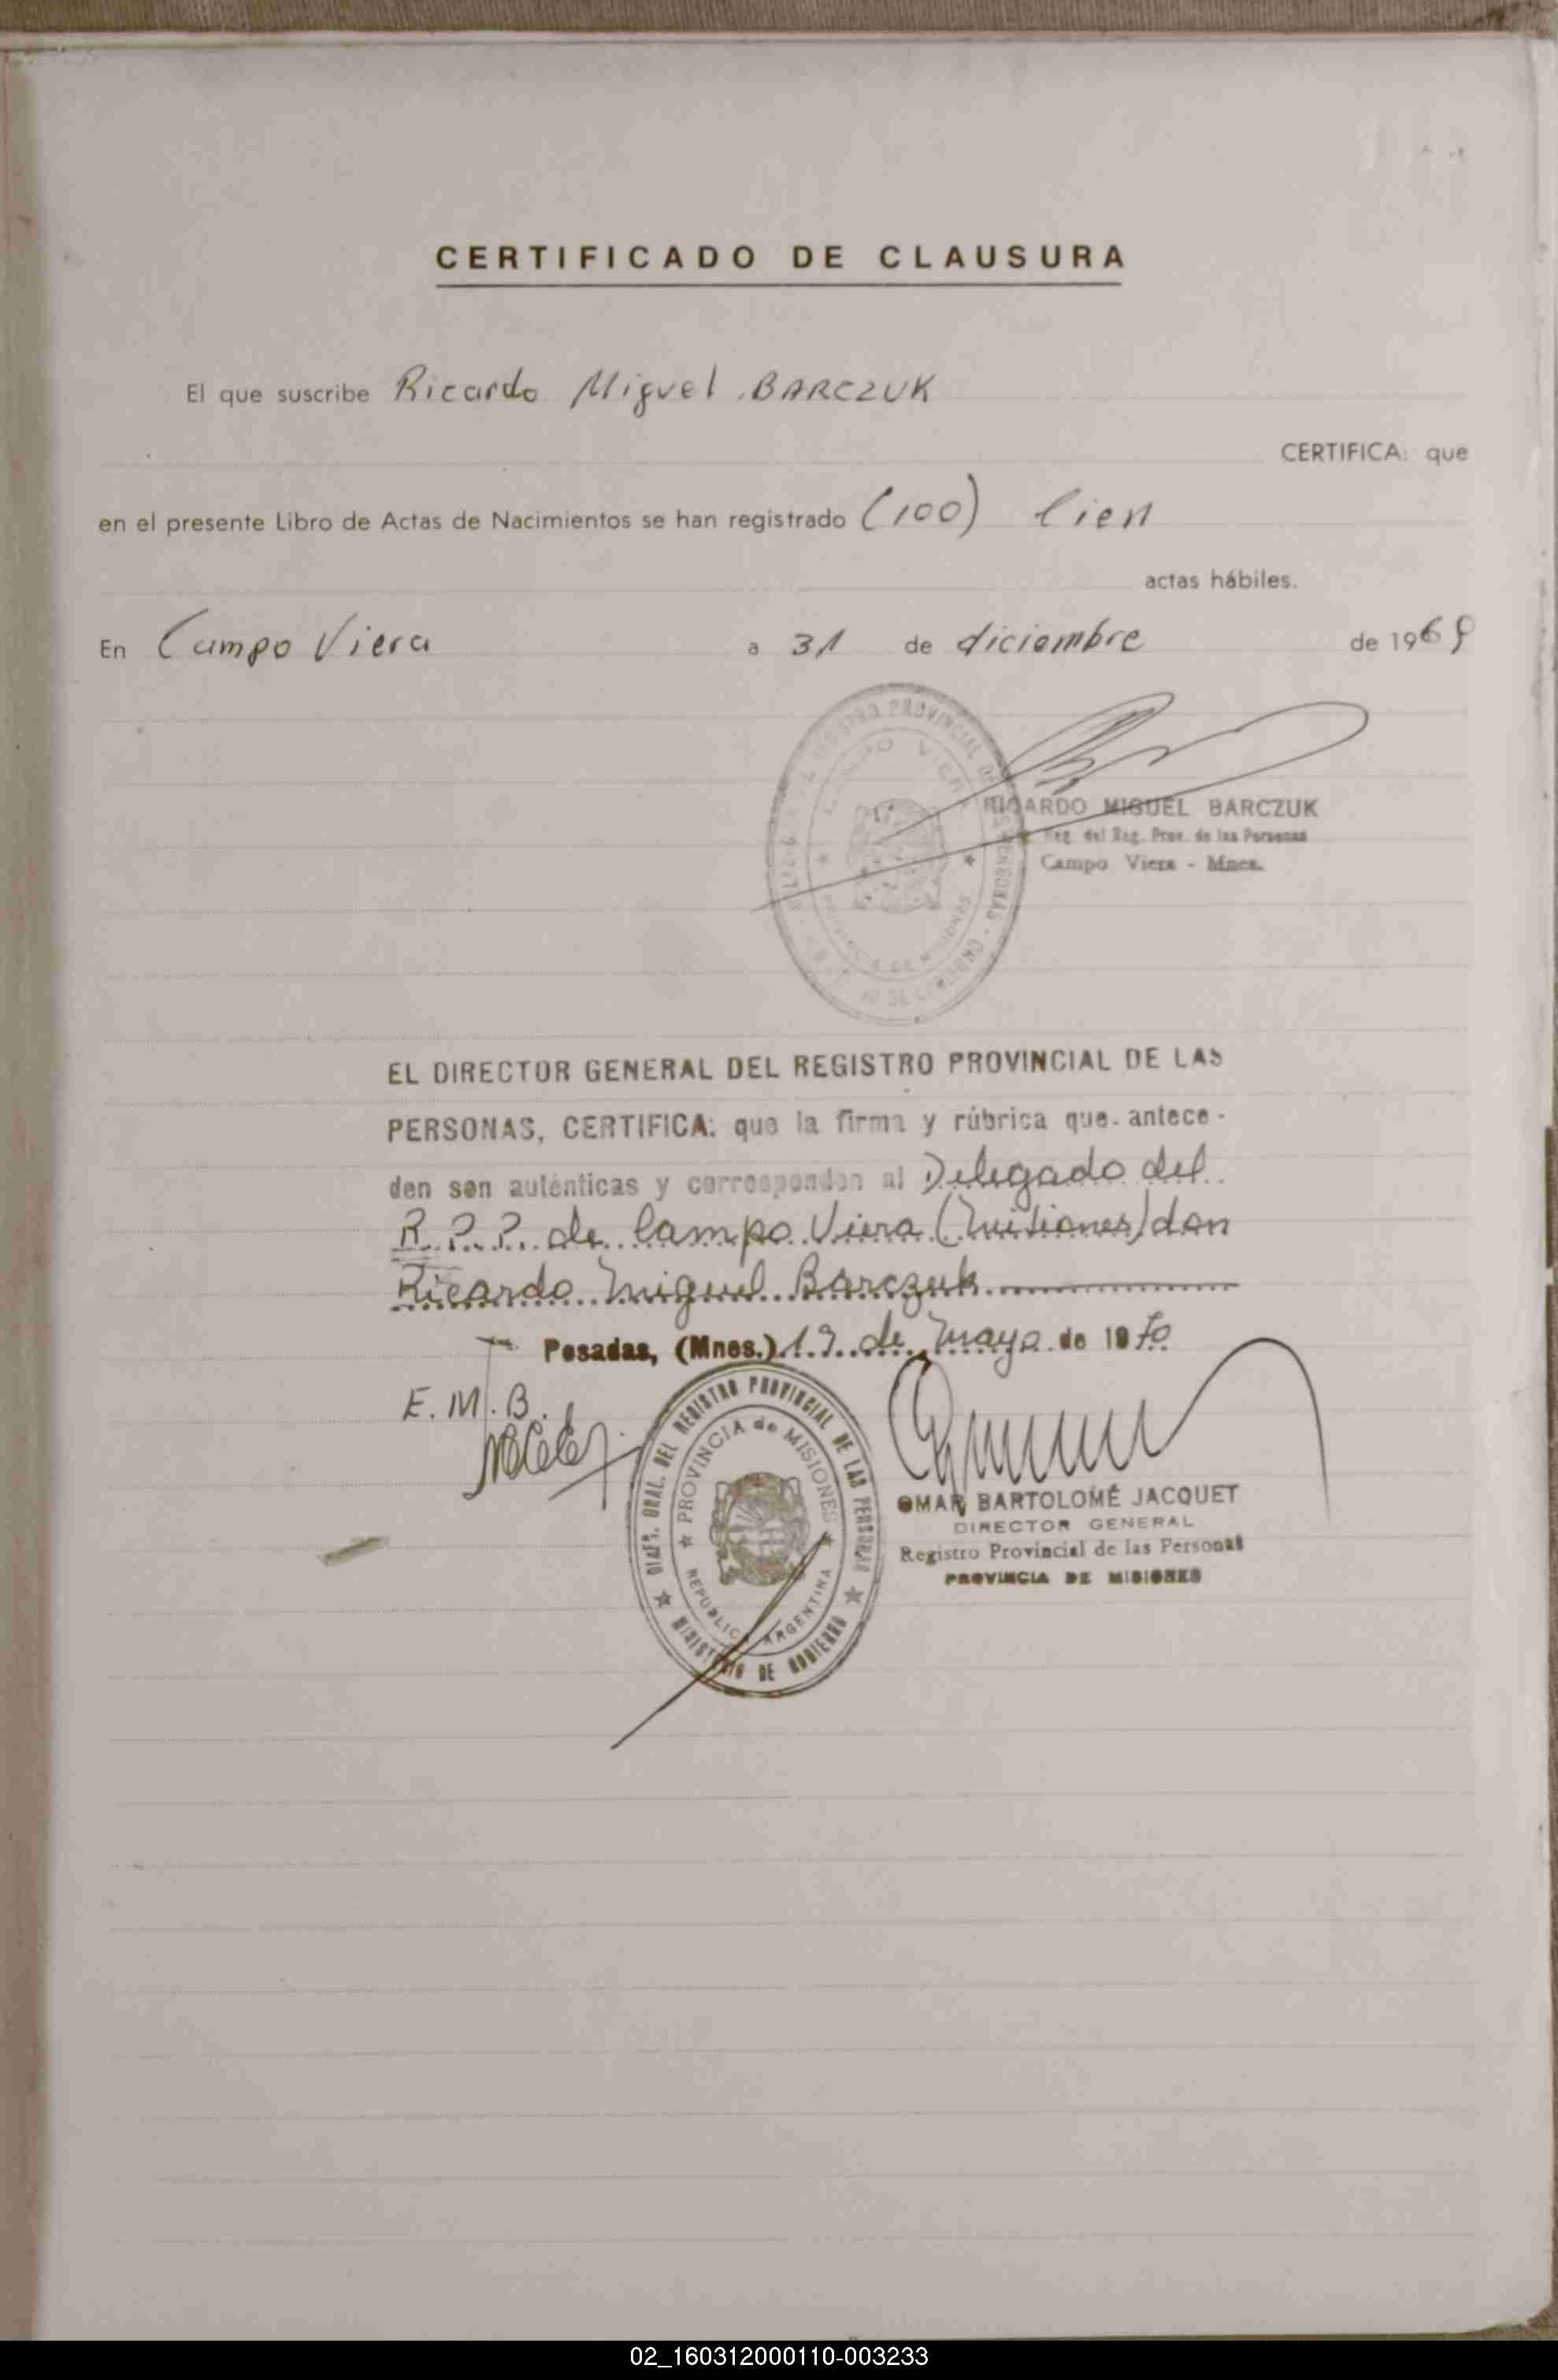 CERTIFICADO DE CLAUSURA
El que suscribe Ricardo Miguel BARCZUK
CERTIFICA: que
en el presente Libro de Actas de Nacimientos se han registrado (100) Cien
actas hábiles.
En Campo Viera a 31 de diciembre de 1969
RICARDO MIGUEL BARCZUK
Reg. Prov. de las Personas
Campo Viera - Mnes.
CAMPO VIERA
PROVINCIA DE MISIONES
EL DIRECTOR GENERAL DEL REGISTRO PROVINCIAL DE LAS
PERSONAS, CERTIFICA: que la firma y rúbrica que antece-
den son auténticas y corresponden al Delegado del
R.P.P. de Campo Viera (Misiones) don
Ricardo Miguel Barczuk
Posadas, (Mnes.) 19 de mayo de 1970
E.M.B.
DIREC. GRAL. DEL REGISTRO PROVINCIAL DE LAS PERSONAS
PROVINCIA de MISIONES
REPUBLICA ARGENTINA
MINISTERIO DE GOBIERNO
OMAR BARTOLOMÉ JACQUET
DIRECTOR GENERAL
Registro Provincial de las Personas
PROVINCIA DE MISIONES
02_160312000110-003233